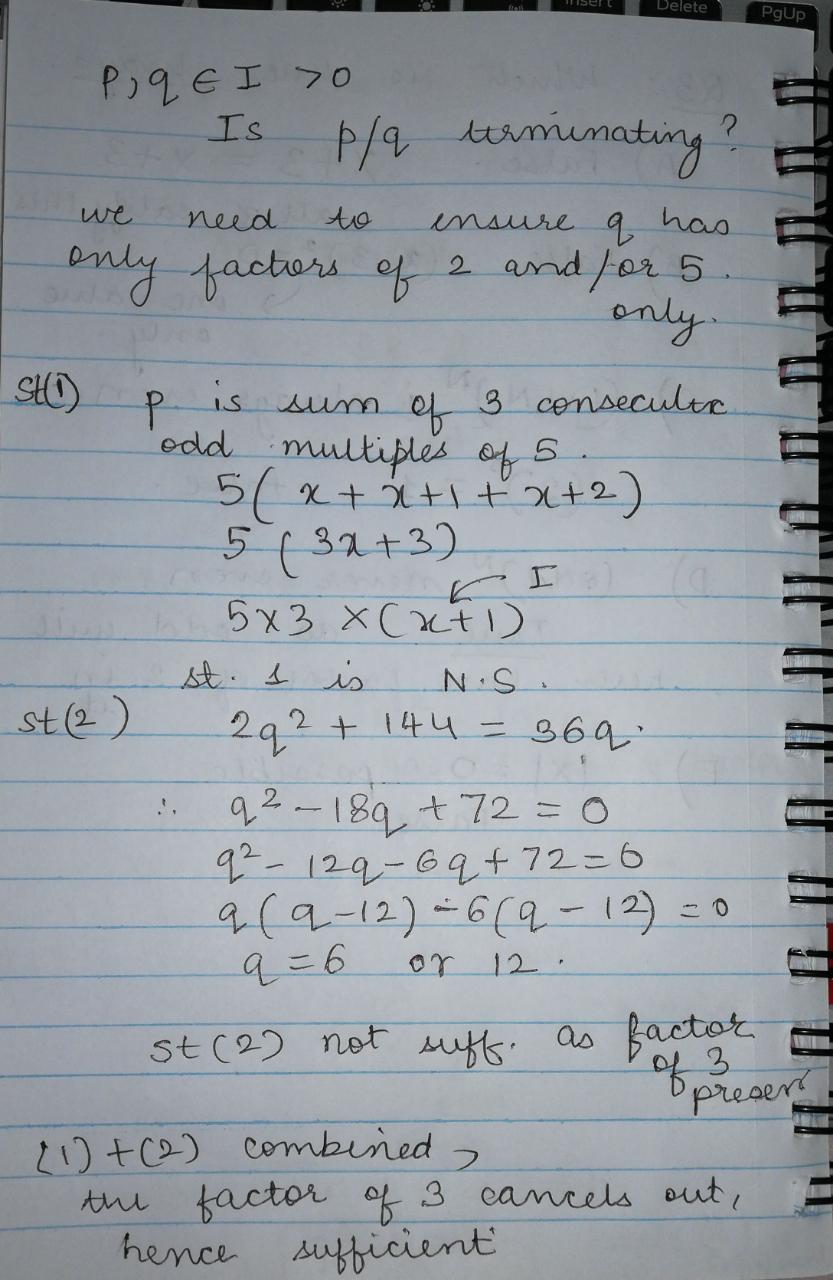 Insert Delete PgUp
p, q ∈ I > 0
Is p/q terminating?
we need to ensure q has
only factors of 2 and/or 5.
only.
St(1) p is sum of 3 consecutive
odd multiples of 5.
5( x + x+1 + x+2)
5 (3x+3)
I
5x3 x(x+1)
st. 1 is N.S.
st(2) 2q² + 144 = 36q.
∴ q² - 18q + 72 = 0
q² - 12q - 6q + 72 = 0
q(q-12) - 6(q-12) = 0
q = 6 or 12.
st(2) not suff. as factor
of 3
present
(1)+(2) combined,
the factor of 3 cancels out,
hence sufficient